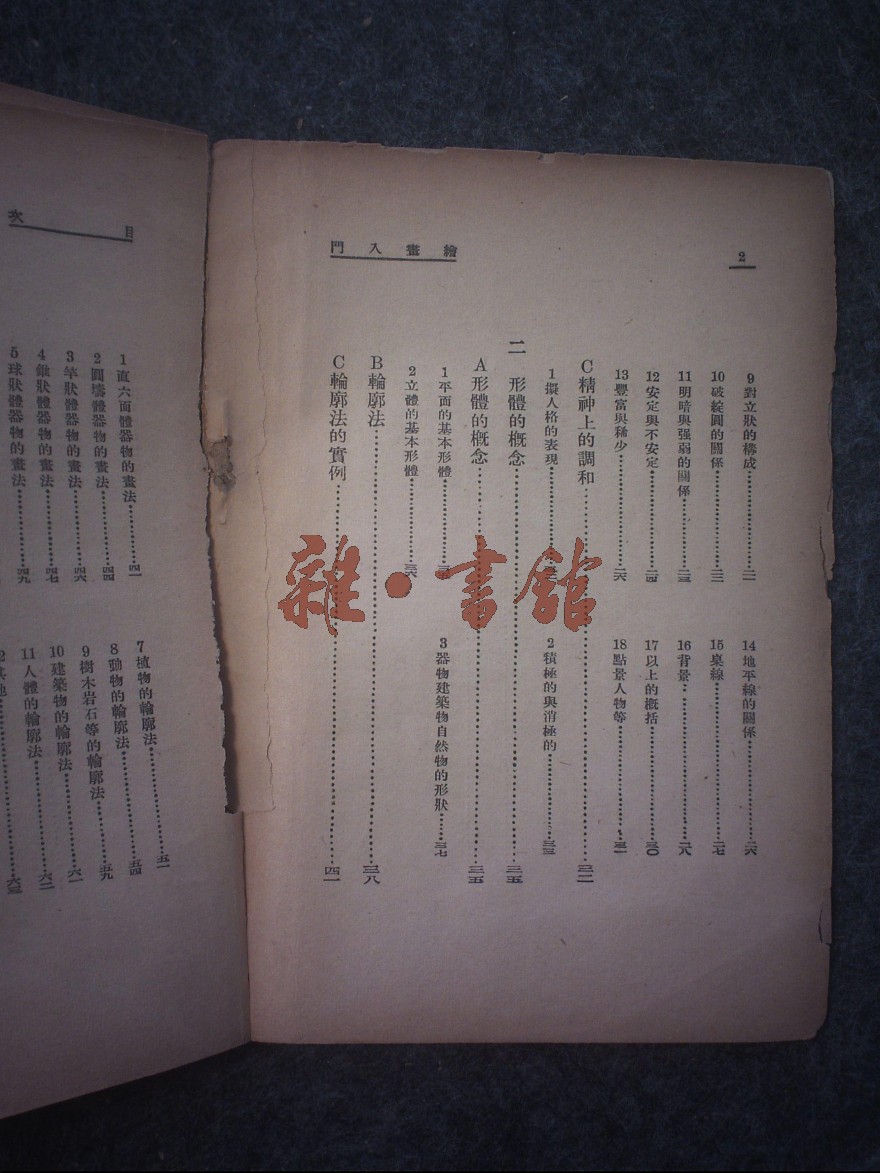 繪畫入門
2
9對立狀的構成……二一
14地平線的關係……二六
10破綻圓的關係……二二
15桌線……二七
11明暗與强弱的關係……二三
16背景……二八
12安定與不安定……二四
17以上的概括……三〇
13豐富與稀少……二六
18點景人物等……三一
C精神上的調和……三二
1擬人格的表現
2積極的與消極的……三三
二 形體的概念……三五
A形體的概念……三五
1平面的基本形體
3器物建築物自然物的形狀……三七
2立體的基本形體……三六
B輪廓法……三八
C輪廓法的實例……四一
目次
1直六面體器物的畫法……四一
7植物的輪廓法……五一
2圓壔體器物的畫法……四四
8動物的輪廓法……五四
3竿狀體器物的畫法……四六
9樹木岩石等的輪廓法……五九
4錐狀體器物的畫法……四七
10建築物的輪廓法……六一
5球狀體器物的畫法……四九
11人體的輪廓法……六二
六三
雜·書館